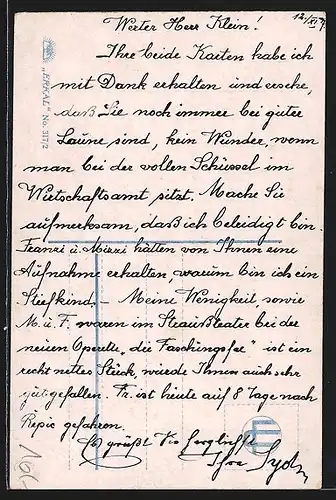 12/XI. 17.
Werter Herr Klein!
Ihre beide Karten habe ich
mit Dank erhalten und ersehe,
daß Sie noch immer bei guter
Laune sind, kein Wunder, wenn
man bei der vollen Schüssel im
Wirtschaftsamt sitzt. Mache Sie
aufmerksam, daß ich beleidigt bin.
Franzi u. Mizzi hatten von Ihnen eine
Aufnahme erhalten warum bin ich ein
Stiefkind. – Meine Wenigkeit sowie
M. u. F. waren im Straußteater bei der
neuen Operette „die Faschingsfee" ist ein
recht nettes Stück, würde Ihnen auch sehr
gut gefallen. Fr. ist heute auf 8 Tage nach
gefahren.
Es grüßt Sie herzlichst
Ihre
„ERKAL" No. 317/2